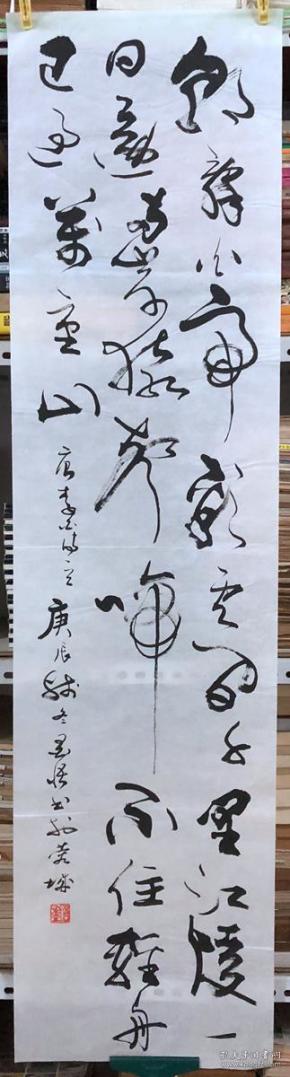 朝辞白帝彩云间千里江陵一
日还两岸猿声啼不住轻舟
已过万重山 唐李白诗之 庚辰秋冬墨缘书于蓉城